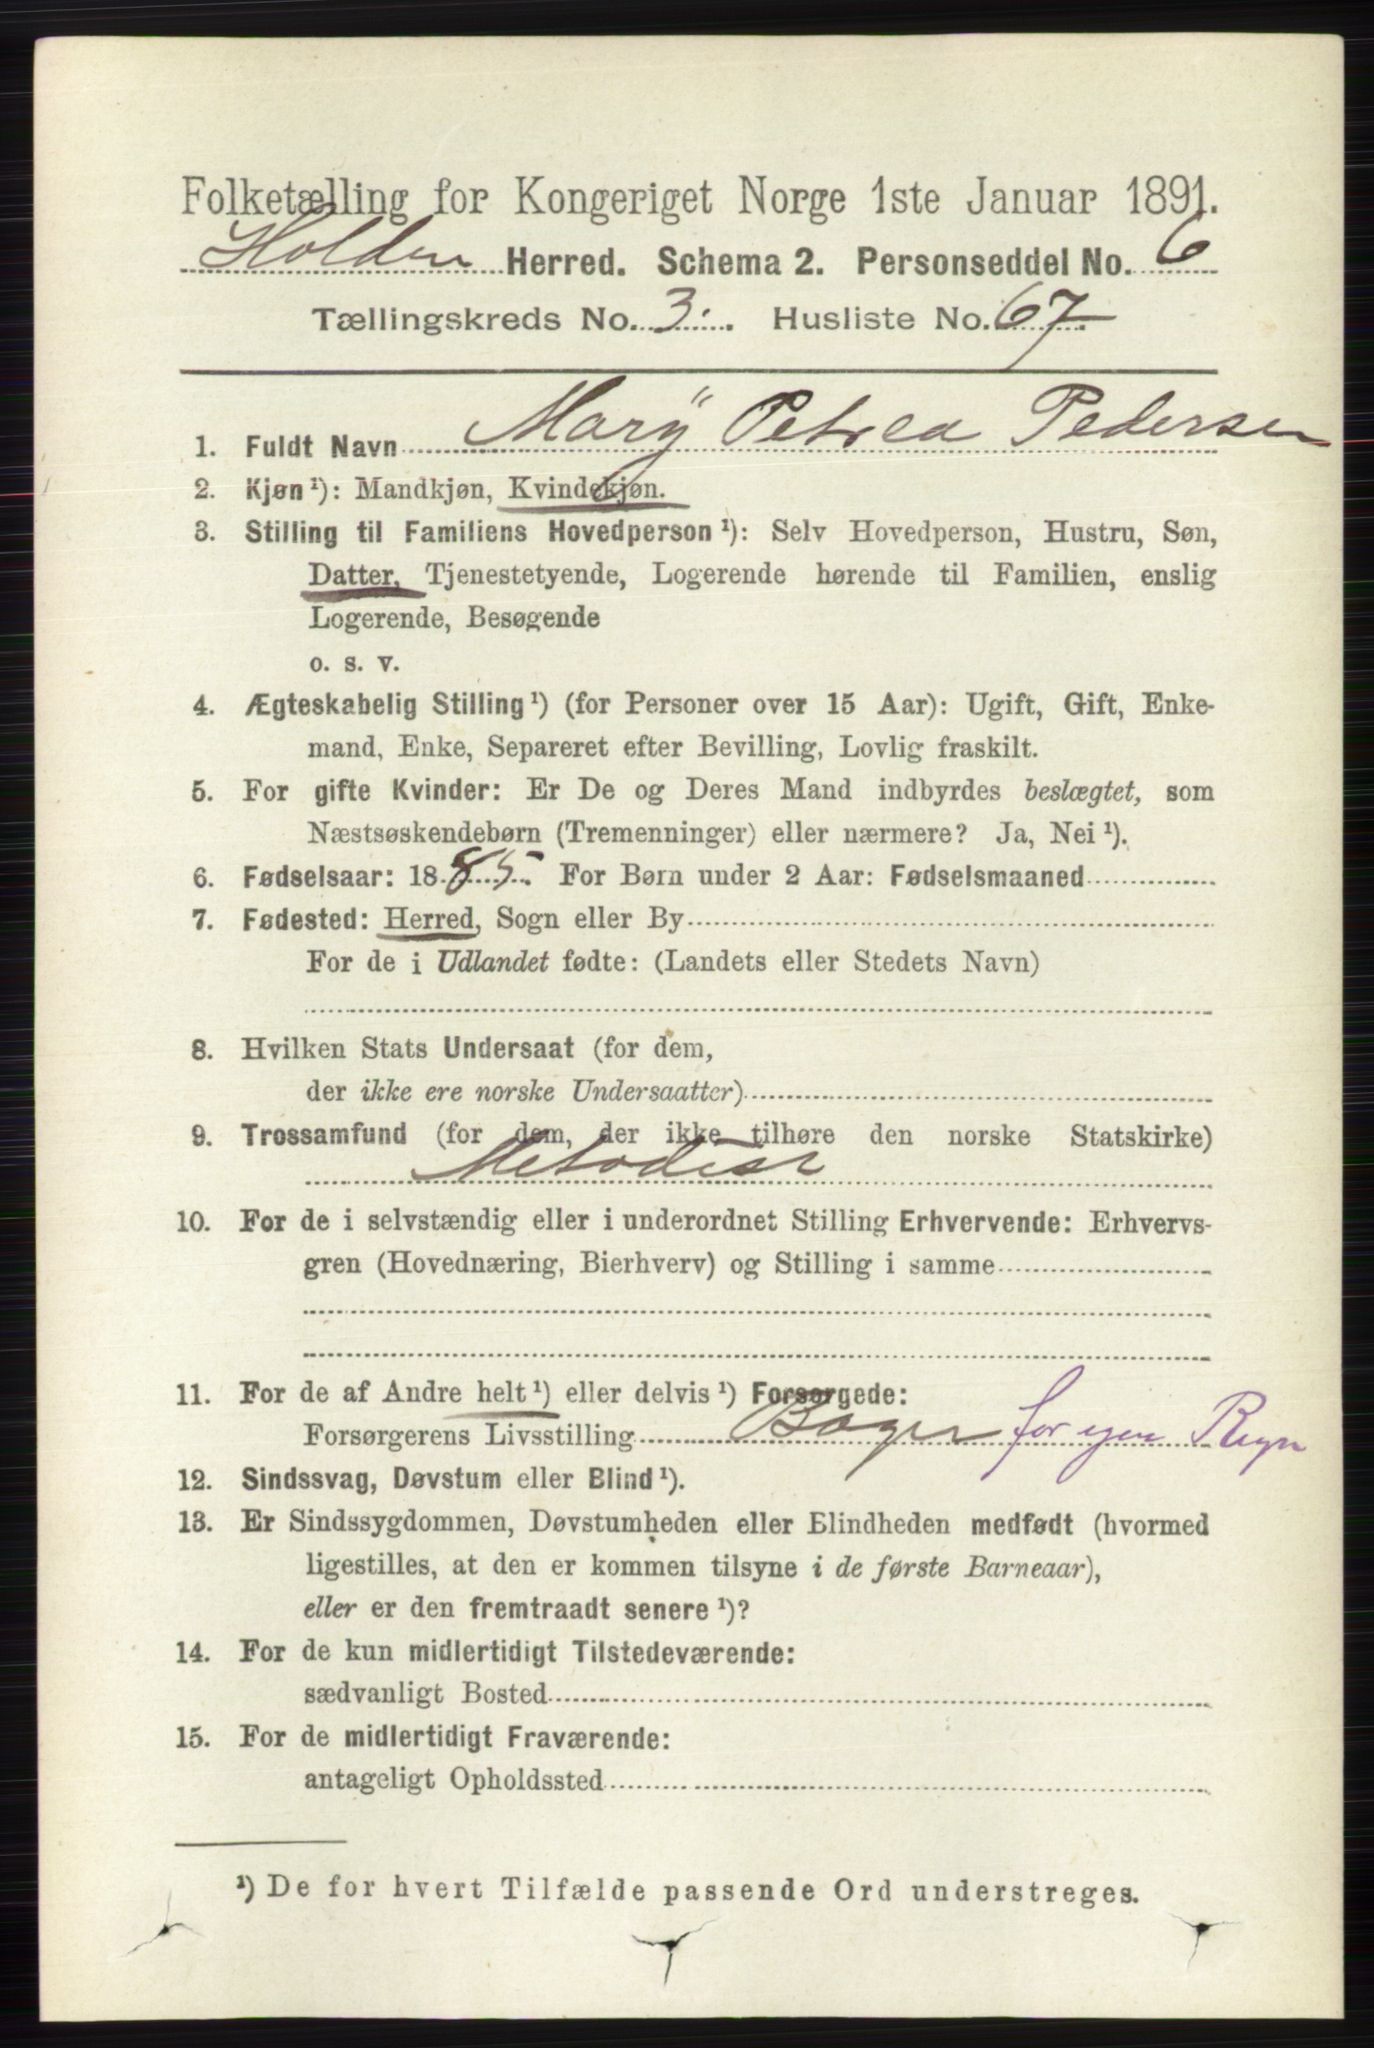 Folketælling for Kongeriget Norge 1ste Januar 1891.
Holden Herred. Schema 2. Personseddel No. 6
Tællingskreds No. 3. Husliste No. 67
1. Fuldt Navn Marÿ Petrea Pedersen
2. Kjøn¹): Mandkjøn, Kvindekjøn.
3. Stilling til Familiens Hovedperson¹): Selv Hovedperson, Hustru, Søn,
Datter, Tjenestetyende, Logerende hørende til Familien, enslig
Logerende, Besøgende
o. s. v.
4. Ægteskabelig Stilling¹) (for Personer over 15 Aar): Ugift, Gift, Enke-
mand, Enke, Separeret efter Bevilling, Lovlig fraskilt.
5. For gifte Kvinder: Er De og Deres Mand indbyrdes beslægtet, som
Næstsøskendebørn (Tremenninger) eller nærmere? Ja, Nei¹).
6. Fødselsaar: 1885. For Børn under 2 Aar: Fødselsmaaned
7. Fødested: Herred, Sogn eller By
For de i Udlandet fødte: (Landets eller Stedets Navn)
8. Hvilken Stats Undersaat (for dem,
der ikke ere norske Undersaatter)
9. Trossamfund (for dem, der ikke tilhøre den norske Statskirke)
Metodist
10. For de i selvstændig eller i underordnet Stilling Erhvervende: Erhvervs-
gren (Hovednæring, Bierhverv) og Stilling i samme
11. For de af Andre helt¹) eller delvis¹) Forsørgede:
Forsørgerens Livsstilling Bager for egen Regn
12. Sindssvag, Døvstum eller Blind¹).
13. Er Sindssygdommen, Døvstumheden eller Blindheden medfødt (hvormed
ligestilles, at den er kommen tilsyne i de første Barneaar),
eller er den fremtraadt senere¹)?
14. For de kun midlertidigt Tilstedeværende:
sædvanligt Bosted
15. For de midlertidigt Fraværende:
antageligt Opholdssted
¹) De for hvert Tilfælde passende Ord understreges.